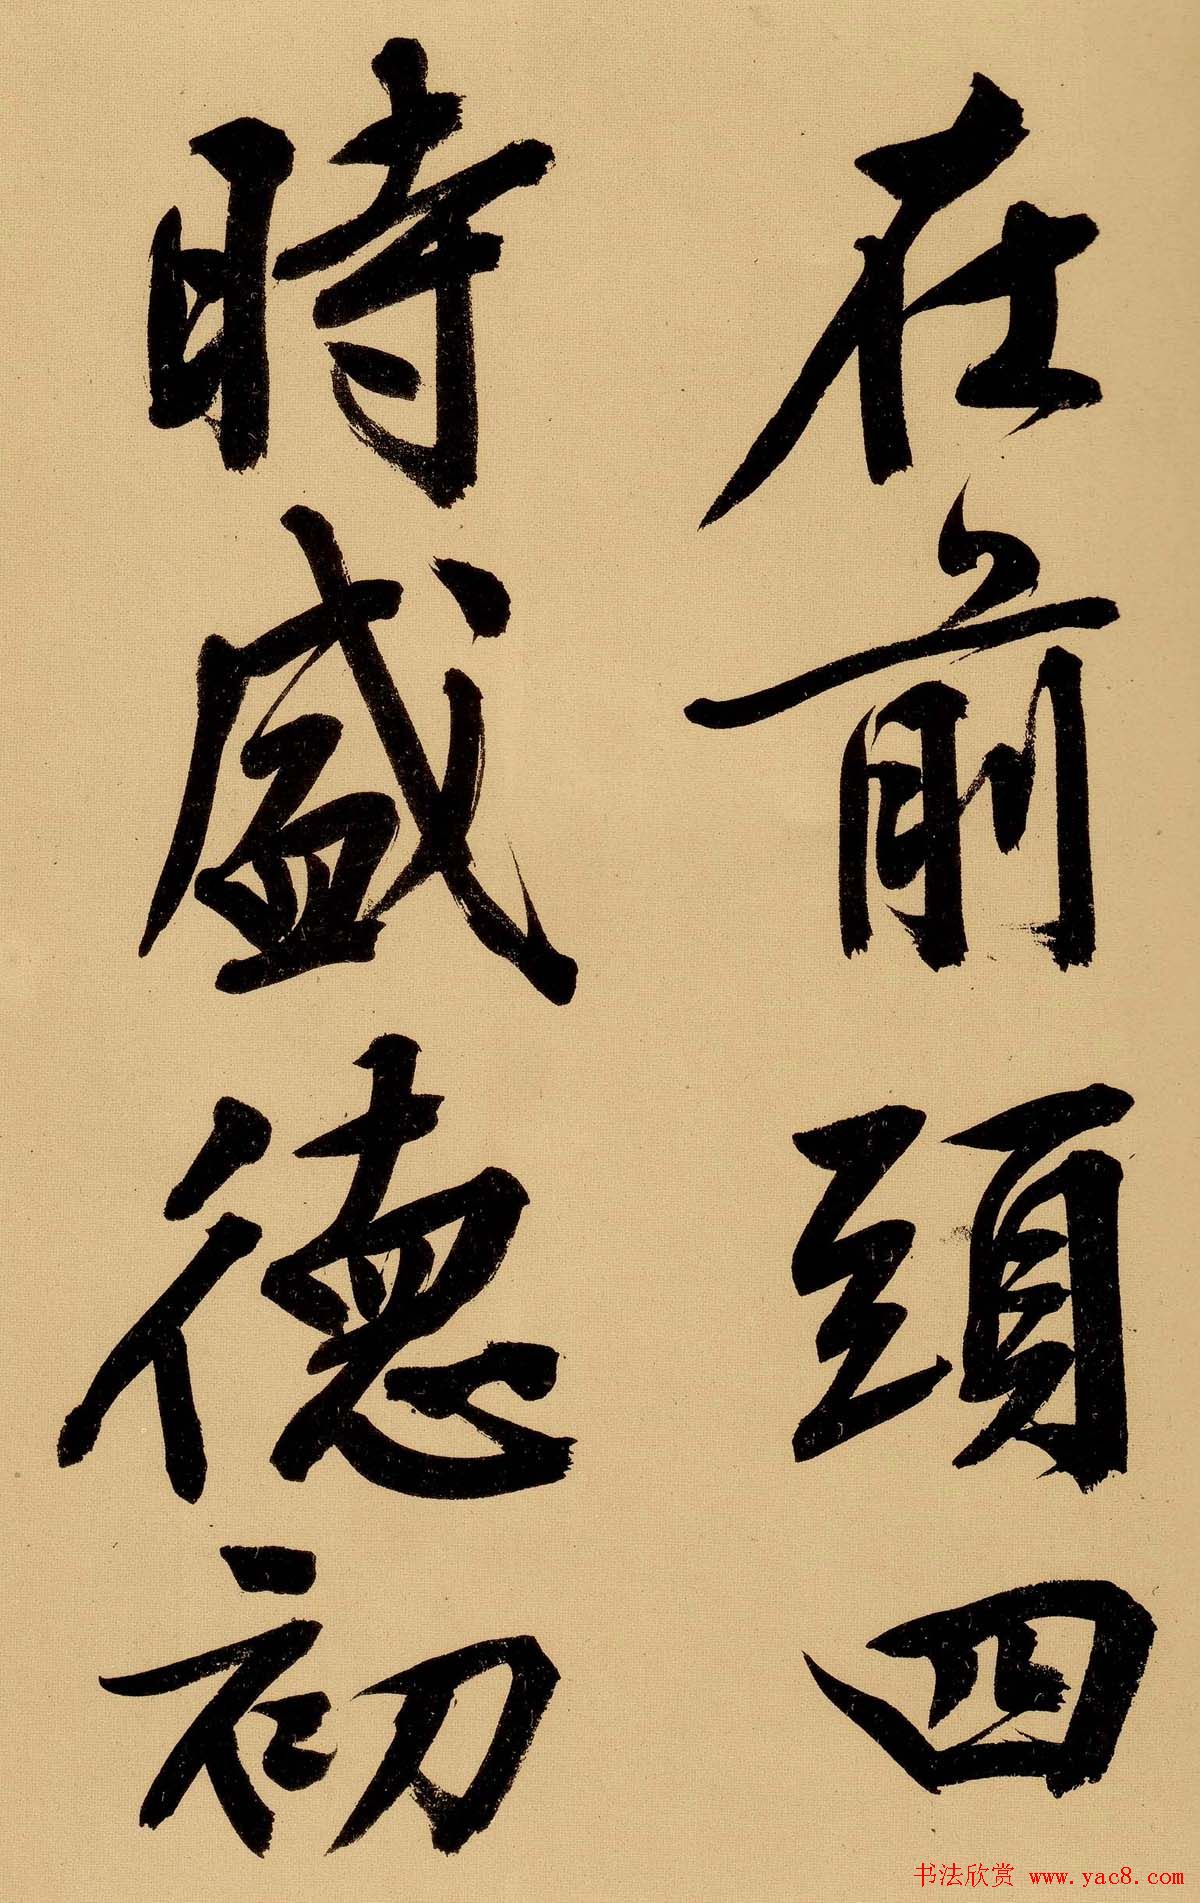 在前頭四
時盛德初
书法欣赏 www.yac8.com